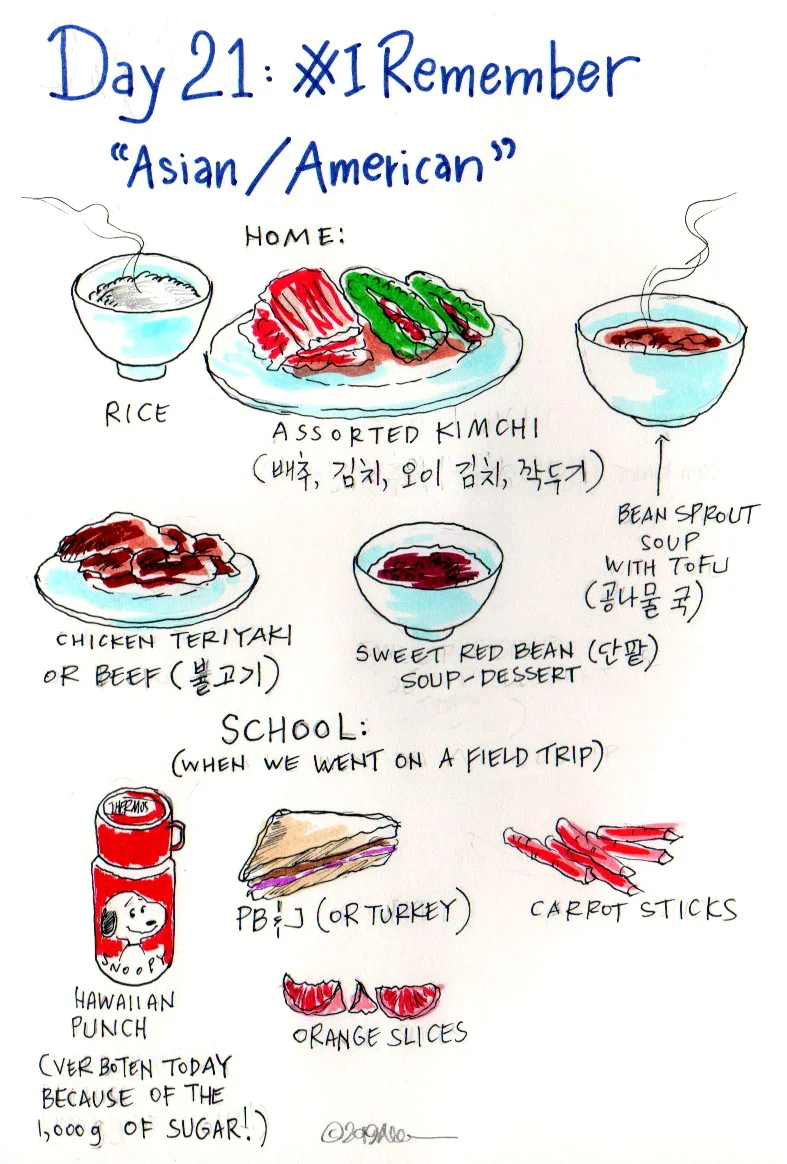 Day 21: #I Remember
"Asian/American"
HOME:
RICE
ASSORTED KIMCHI
(배추, 김치, 오이 김치, 깍두기)
BEAN SPROUT
SOUP
WITH TOFU
(콩나물 국)
CHICKEN TERIYAKI
OR BEEF (불고기)
SWEET RED BEAN (단팥)
SOUP-DESSERT
SCHOOL:
(WHEN WE WENT ON A FIELD TRIP)
THERMOS
SNOOPY
HAWAIIAN
PUNCH
(VERBOTEN TODAY
BECAUSE OF THE
1,000g OF SUGAR!)
PB&J (OR TURKEY)
CARROT STICKS
ORANGE SLICES